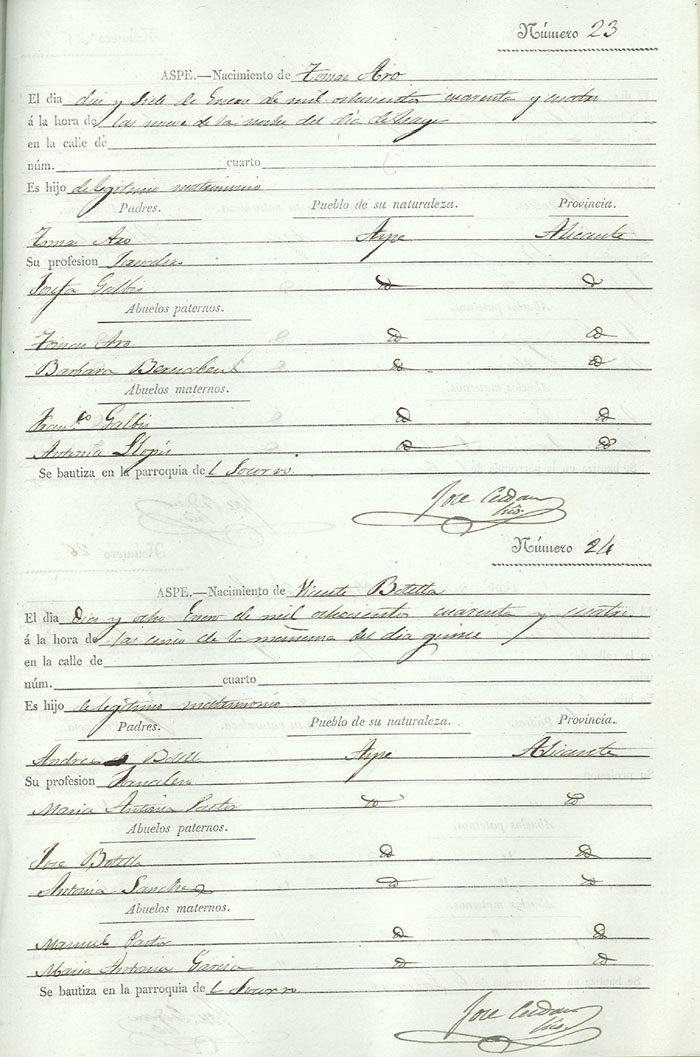 Número 23
ASPE.—Nacimiento de Tomas Aro
El dia diez y siete de Enero de mil ochocientos cuarenta y cuatro
á la hora de las nueve de la noche del dia de
en la calle de
núm. cuarto
Es hijo de legitimo matrimonio
Padres. Pueblo de su naturaleza. Provincia.
Tomas Aro Aspe Alicante
Su profesion
Josefa Galbis id id
Abuelos paternos.
Tomas Aro id id
Barbara Bernabeu id id
Abuelos maternos.
Franco Galbis id id
Antonia Llopis id id
Se bautiza en la parroquia del Socorro.
Jose Cerdan
Número 24
ASPE.—Nacimiento de Vicente Botella
El dia Diez y ocho Enero de mil ochocientos cuarenta y cuatro
á la hora de las cinco de la mañana del dia quince
en la calle de
núm. cuarto
Es hijo de legitimo matrimonio
Padres. Pueblo de su naturaleza. Provincia.
Andres Botella Aspe Alicante
Su profesion
Maria Antonia Pastor id id
Abuelos paternos.
Jose Botella id id
Antonia Sanchez id id
Abuelos maternos.
Manuel Pastor id id
Maria Antonia Garcia id id
Se bautiza en la parroquia del Socorro
Jose Cerdan